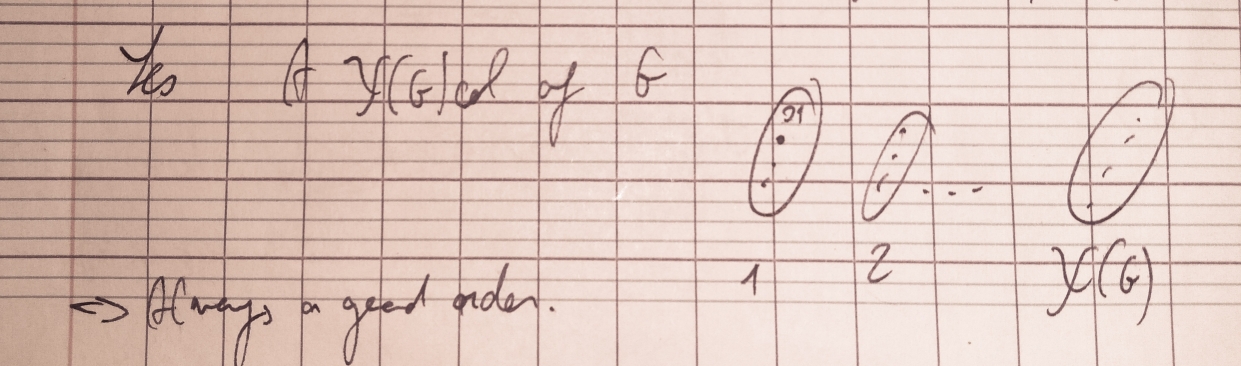 Yes A χ(G) col of G
1 2 ... χ(G)
<-> Always a good order.